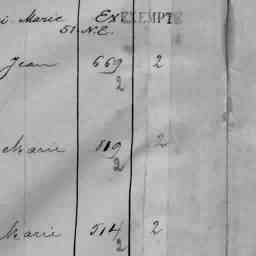 Marie Ex EXEMPTÉ
51 N.C.
Jean 669 2
2
Marie 119 2
2
Marie 514 2
2